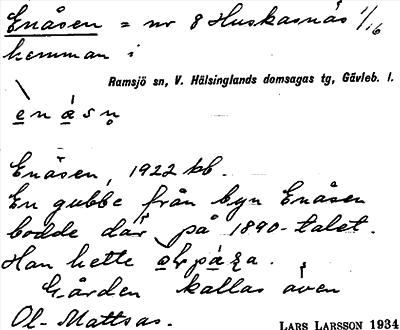 Enåsen = nr 8 Huskasnäs 1/16
hemman i
Ramsjö sn, V. Hälsinglands domsagas tg, Gävleb. l.
e n å s n̥
Enåsen, 1922 kb.
En gubbe från byn Enåsen
bodde där på 1890-talet.
Han hette
Gården kallas även
Ol-Mattsas.
LARS LARSSON 1934